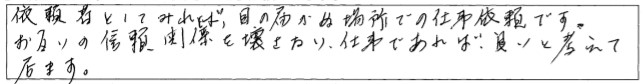 依頼者としてみれば、目の届かぬ場所での仕事依頼です。
お互いの信頼関係を壊さない、仕事であれば、良いと考えて
居ます。